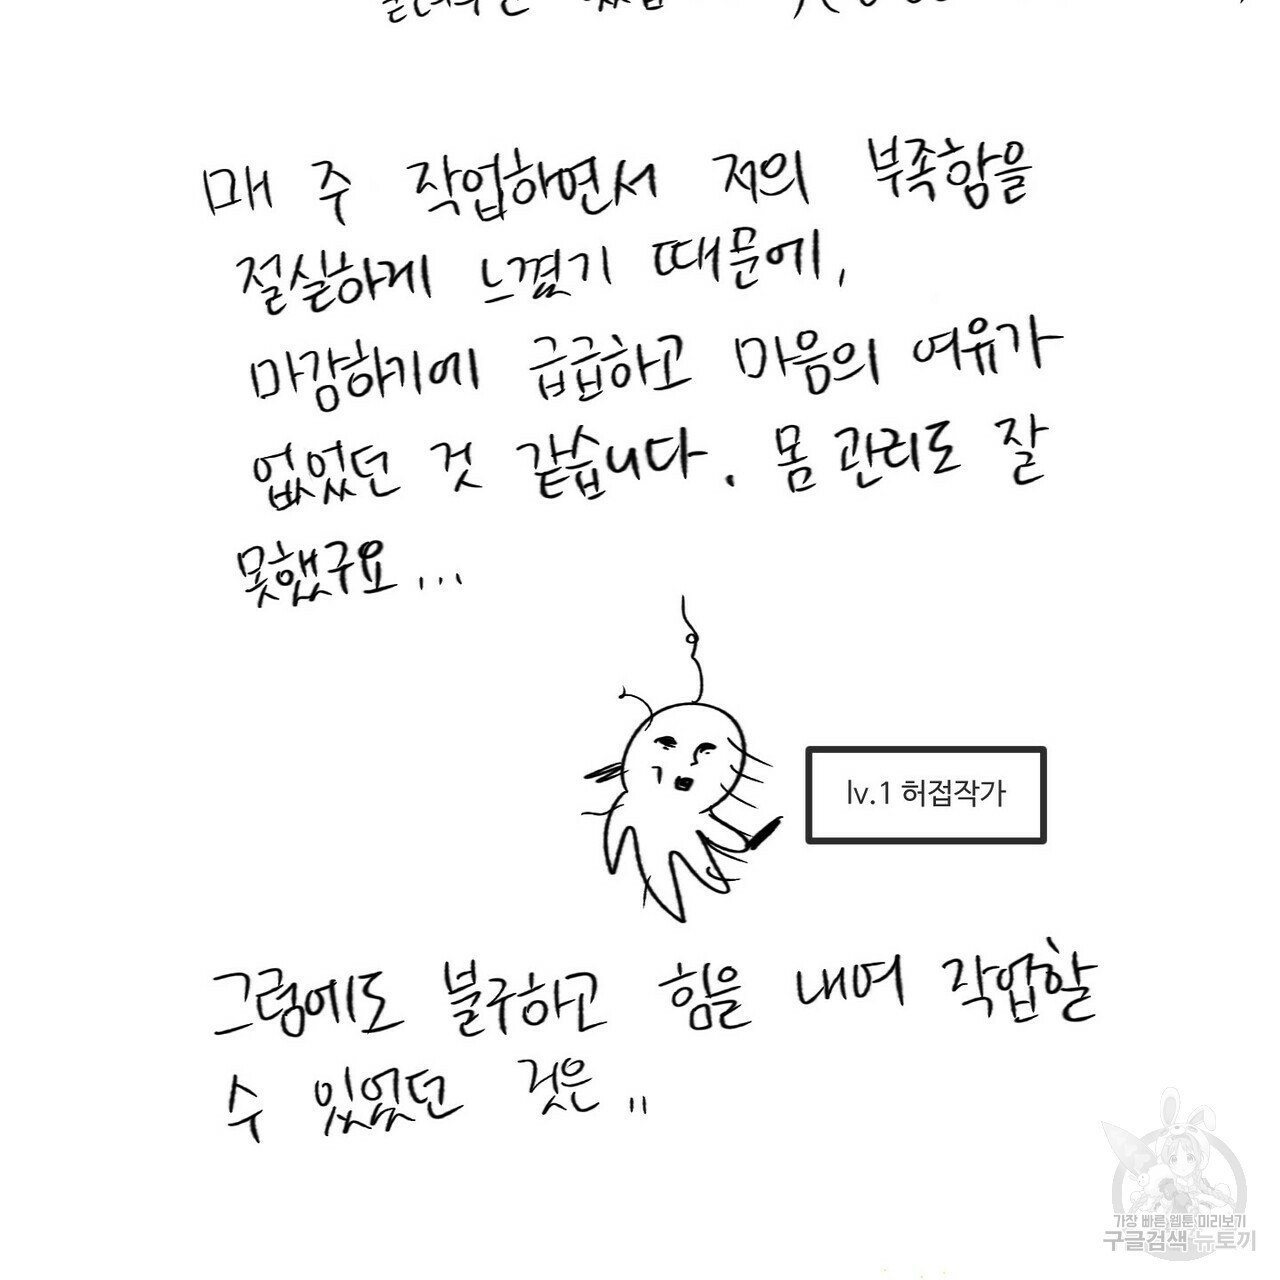 매 주 작업하면서 저의 부족함을
절실하게 느꼈기 때문에,
마감하기에 급급하고 마음의 여유가
없었던 것 같습니다. 몸 관리도 잘
못했구요...
lv.1 허접작가
그럼에도 불구하고 힘을 내어 작업할
수 있었던 것은..
가장 빠른 웹툰 미리보기
구글검색 뉴토끼